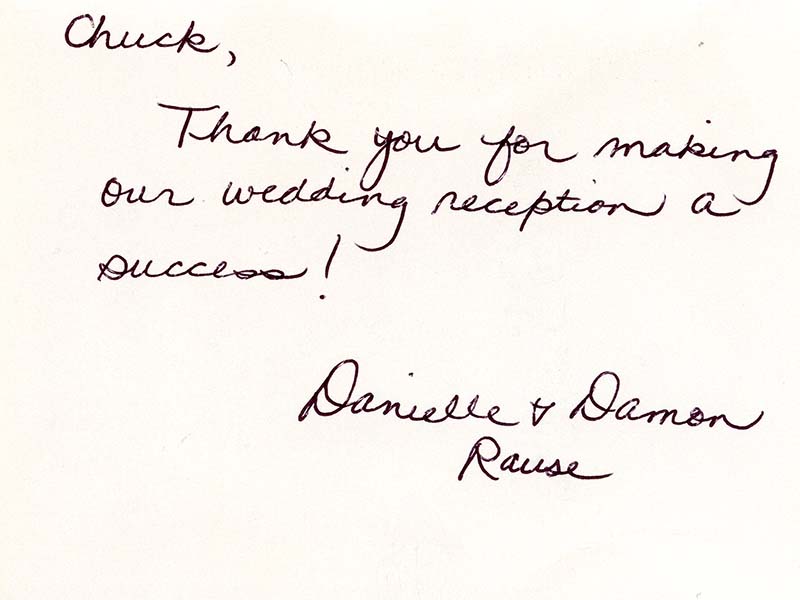 Chuck,
Thank you for making
our wedding reception a
success!
Danielle & Damon
Rause